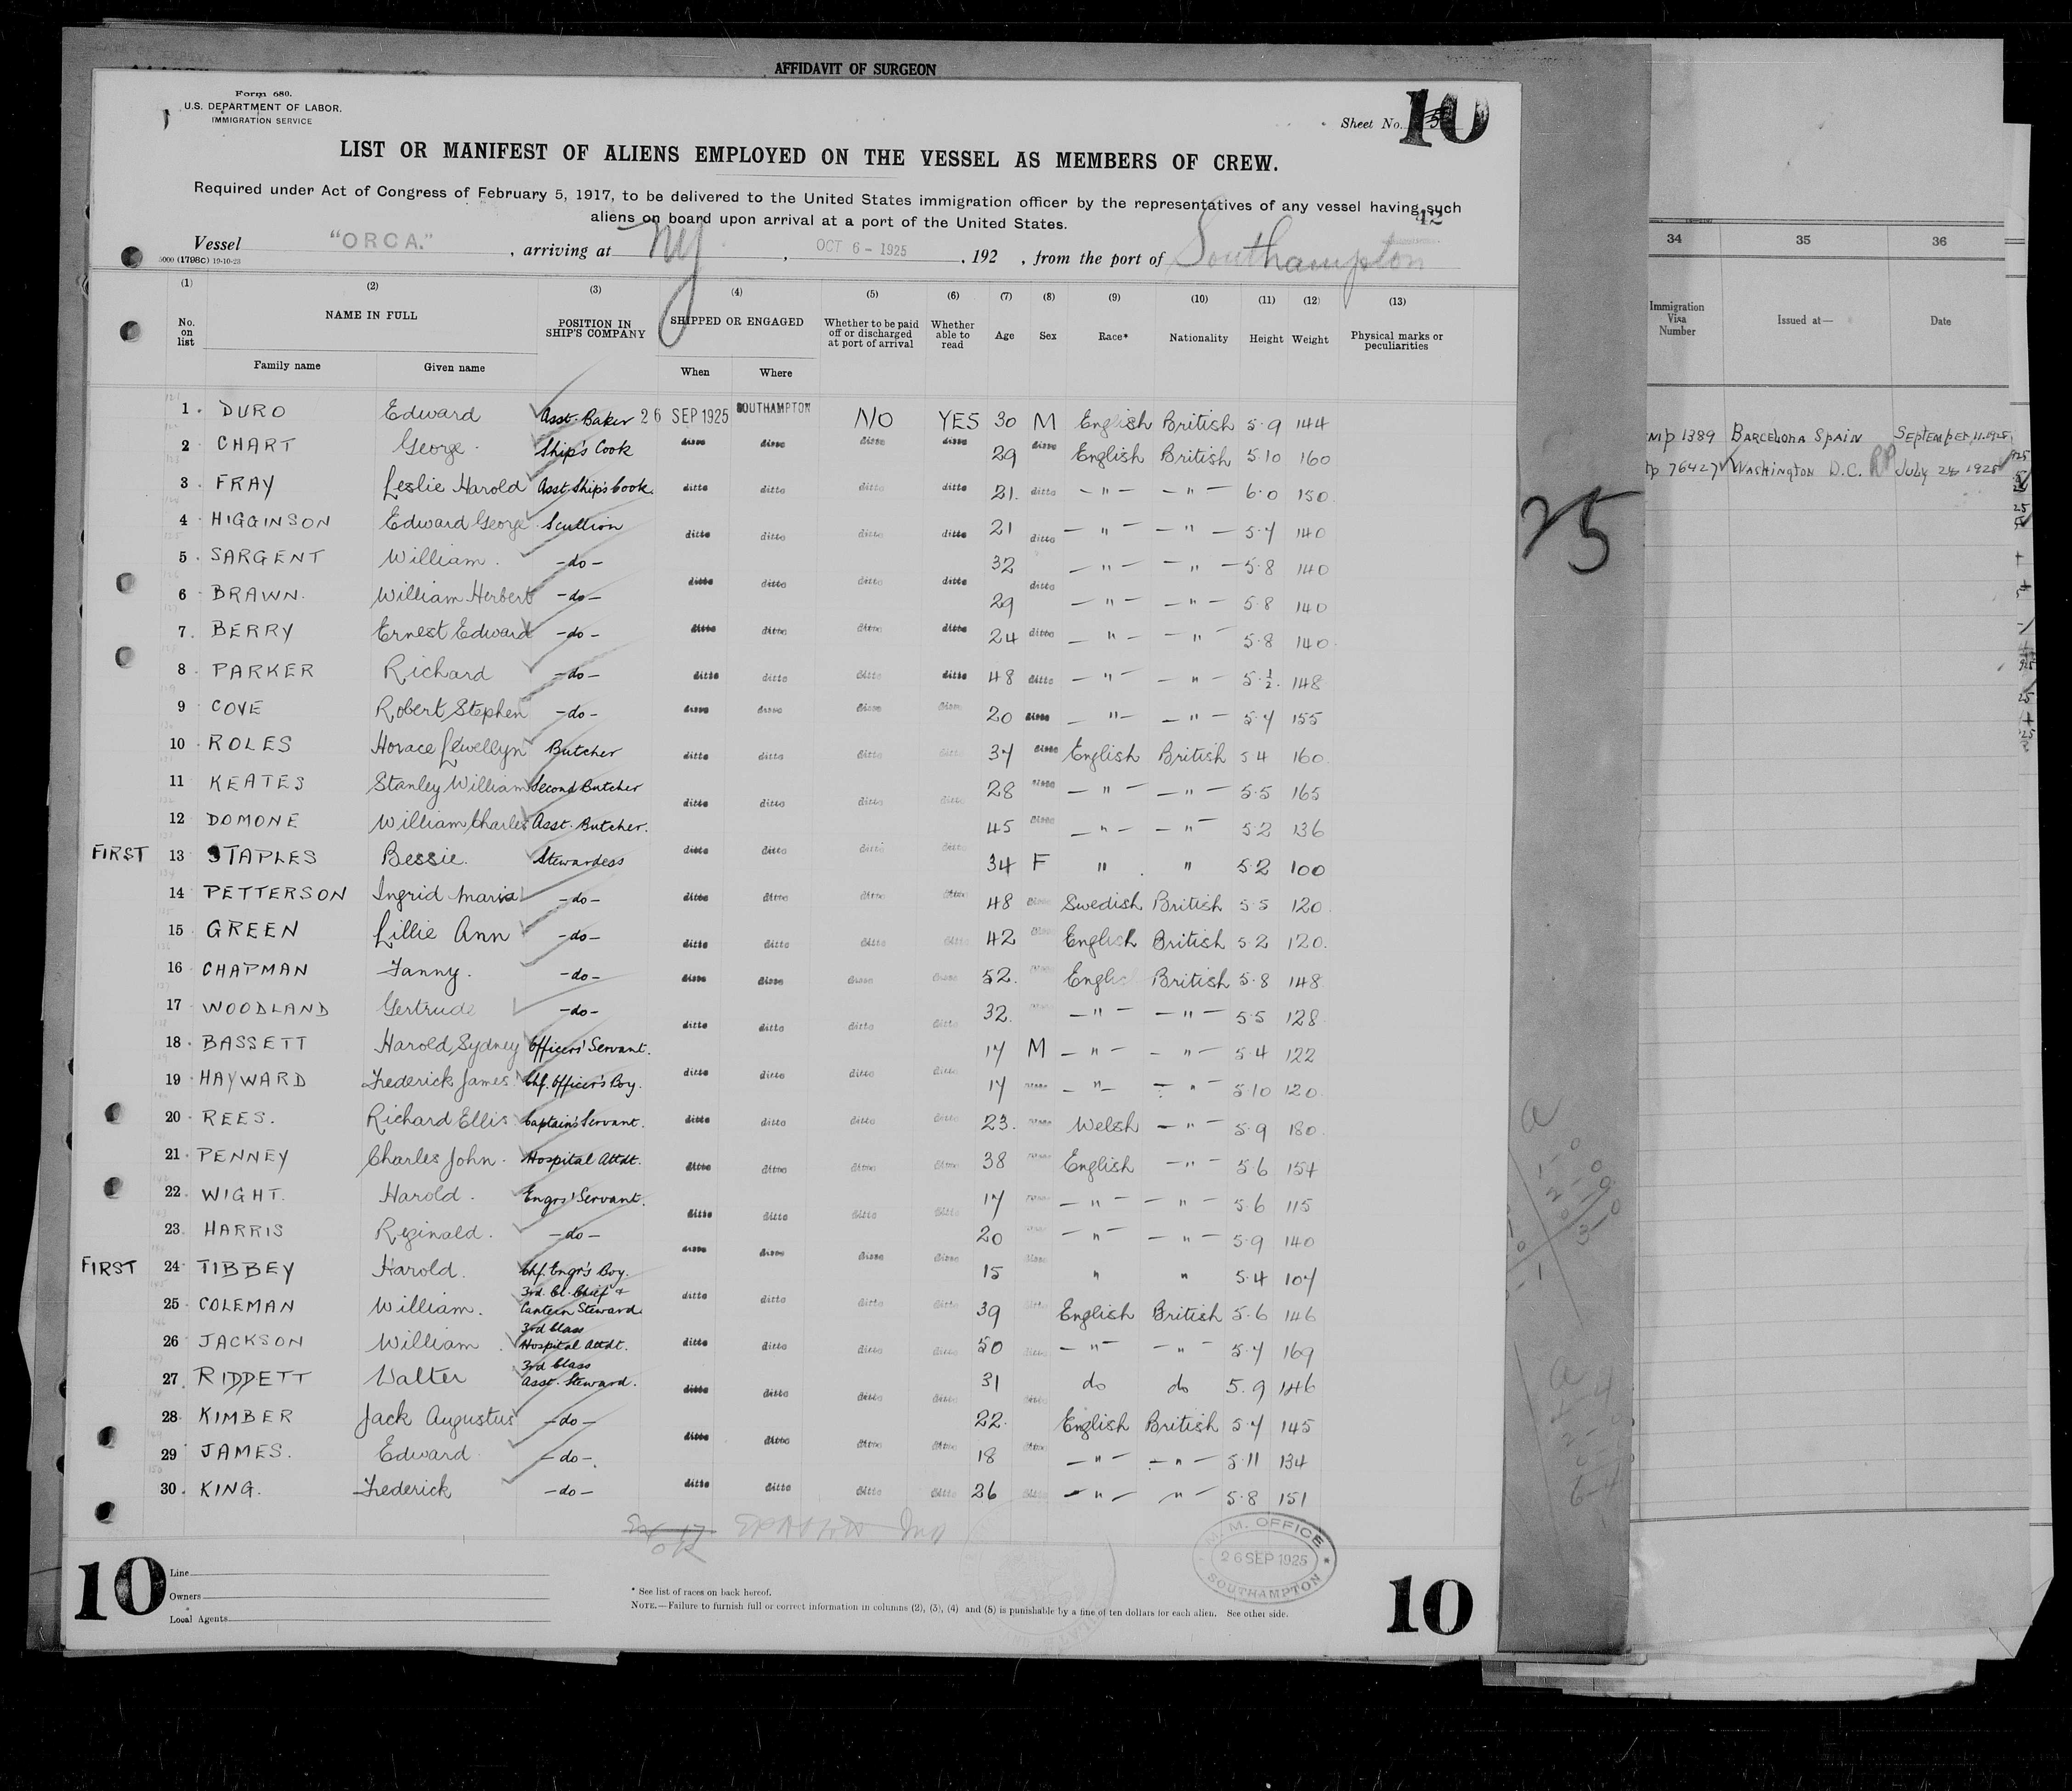 AFFIDAVIT OF SURGEON
Form 680.
U.S. DEPARTMENT OF LABOR.
IMMIGRATION SERVICE
Sheet No. 5 10
LIST OR MANIFEST OF ALIENS EMPLOYED ON THE VESSEL AS MEMBERS OF CREW.
Required under Act of Congress of February 5, 1917, to be delivered to the United States immigration officer by the representatives of any vessel having such
aliens on board upon arrival at a port of the United States.
12
Vessel "ORCA." , arriving at NY , OCT 6 - 1925 , 192 , from the port of Southampton
5000 (1798C) 19-10-23
(1) (2) (3) (4) (5) (6) (7) (8) (9) (10) (11) (12) (13)
No. on list NAME IN FULL POSITION IN SHIP'S COMPANY SHIPPED OR ENGAGED Whether to be paid off or discharged at port of arrival Whether able to read Age Sex Race* Nationality Height Weight Physical marks or peculiarities
Family name Given name When Where
1. DURO Edward Asst. Baker 26 SEP 1925 SOUTHAMPTON NO YES 30 M English British 5·9 144
2 CHART George. Ship's Cook ditto ditto ditto ditto 29 ditto English British 5·10 160
3 FRAY Leslie Harold Asst. Ship's Cook. ditto ditto ditto ditto 21. ditto — " — — " — 6·0 150.
4 HIGGINSON Edward George Scullion ditto ditto ditto ditto 21 ditto — " — — " — 5·7 140
5. SARGENT William. —do— 32 — " — — " — 5·8 140
6 BRAWN. William Herbert —do— ditto ditto ditto ditto 29 ditto — " — — " — 5·8 140
7. BERRY Ernest Edward —do— ditto ditto ditto ditto 24 ditto — " — — " — 5·8 140.
8. PARKER Richard —do— ditto ditto ditto ditto 48 ditto — " — — " — 5·½. 148
9 COVE Robert Stephen —do— ditto ditto ditto ditto 20 ditto — " — — " — 5·7 155
10 ROLES Horace Llewellyn Butcher ditto ditto ditto ditto 37 ditto English British 5·4 160
11 KEATES Stanley William Second Butcher ditto ditto ditto ditto 28 ditto — " — — " — 5·5 165
12 DOMONE William Charles Asst. Butcher. 45 ditto — " — — " — 5·2 136
FIRST 13 STAPLES Bessie. Stewardess ditto ditto ditto ditto 34 F " " 5·2 100
14 PETTERSON Ingrid Maria —do— ditto ditto ditto ditto 48 ditto Swedish British 5·5 120
15 GREEN Lillie Ann —do— ditto ditto ditto ditto 42 ditto English British 5·2 120.
16 CHAPMAN Fanny. —do— ditto ditto ditto ditto 52. English British 5·8 148
17 WOODLAND Gertrude —do— ditto ditto ditto ditto 32. — " — — " — 5·5 128
18. BASSETT Harold Sydney Officers' Servant. 17 M — " — — " — 5·4 122
19 HAYWARD Frederick James. Chf. Officer's Boy. ditto ditto ditto ditto 17 — " — — " — 5·10 120
20 REES. Richard Ellis Captain's Servant. ditto ditto ditto ditto 23. Welsh — " — 5·9 180
21. PENNEY Charles John. Hospital Attdt. ditto ditto ditto ditto 38 English — " — 5·6 154
22. WIGHT. Harold. Engrs' Servant. 17 — " — — " — 5·6 115
23. HARRIS Reginald. —do— ditto ditto ditto ditto 20 — " — — " — 5·9 140
FIRST 24 TIBBEY Harold. Chf. Engr's Boy. ditto ditto ditto ditto 15 " " 5·4 107
25 COLEMAN William. 3rd. Cl. Chief & Canteen Steward ditto ditto ditto ditto 39 English British 5·6 146
26 JACKSON William. 3rd Class Hospital Attdt. ditto ditto ditto ditto 50 ditto — " — — " — 5·7 169
27. RIDDETT Walter 3rd Class Asst. Steward. ditto ditto ditto ditto 31 ditto do do 5.9 146
28. KIMBER Jack Augustus —do— 22. English British 5·7 145
29 JAMES. Edward —do—. ditto ditto ditto ditto 18 ditto — " — — " — 5·11 134
30. KING. Frederick —do— ditto ditto ditto ditto 26 ditto — " — — " — 5·8 151
OK
M.M. OFFICE
26 SEP 1925
SOUTHAMPTON
10
Line
Owners
Local Agents
* See list of races on back hereof.
NOTE.—Failure to furnish full or correct information in columns (2), (3), (4) and (5) is punishable by a fine of ten dollars for each alien. See other side.
10
25
34 35 36
Immigration Visa Number Issued at— Date
1389 BARCELONA SPAIN SEPTEMBER, 11. 1925
76427 WASHINGTON D.C. JULY 1925